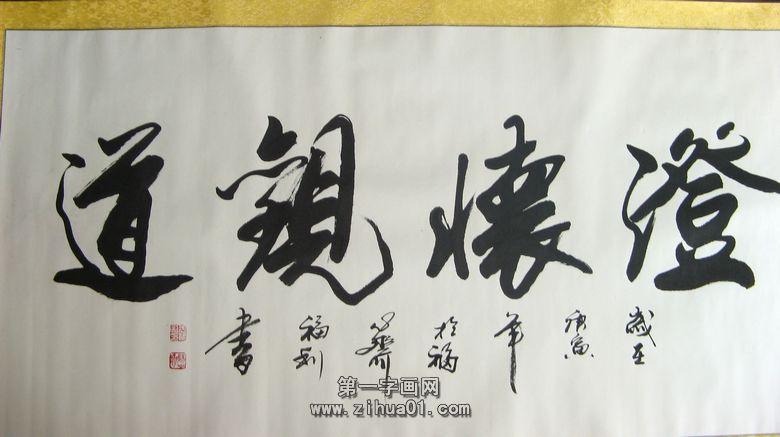 澄懷觀道
歲在
庚寅
年
於福
齋
書
第一字画网
www.zihua01.com